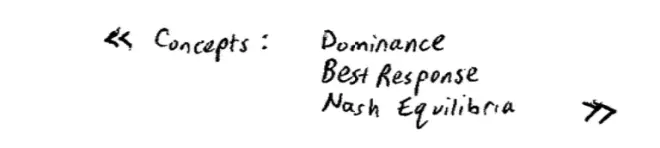 « Concepts : Dominance
Best Response
Nash Equilibria »